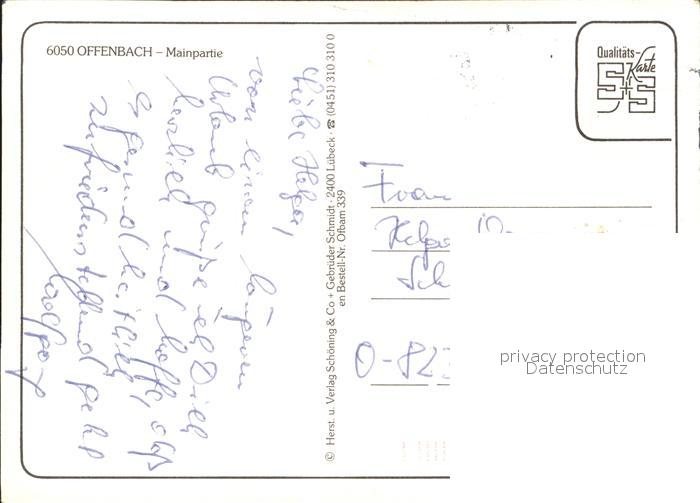 6050 OFFENBACH – Mainpartie
Liebe Helga,
von einem längeren
Urlaub grüße ich Dich
herzlich und hoffe, daß
es gesundheitlich
zufriedenstellend geht
© Herst. u. Verlag Schöning & Co + Gebrüder Schmidt · 2400 Lübeck · ☎ (0451) 310 310 0
en Bestell-Nr. Ofbam 339
Qualitäts-
Karte
S+S
Frau
Helga
Sch
O-82
privacy protection
Datenschutz